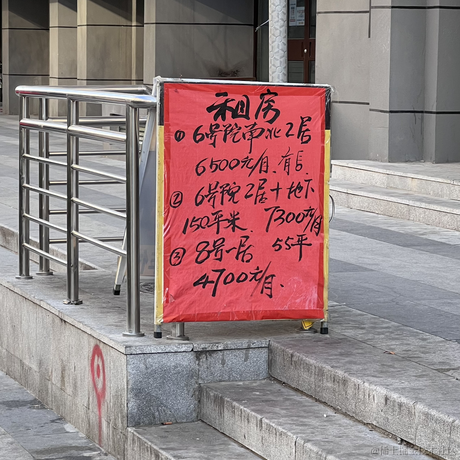 租房
① 6号院南北2居
6500元/月.有
② 6号院2居+地下
150平米. 7300元/月
③ 8号一居 55平
4700元/月.